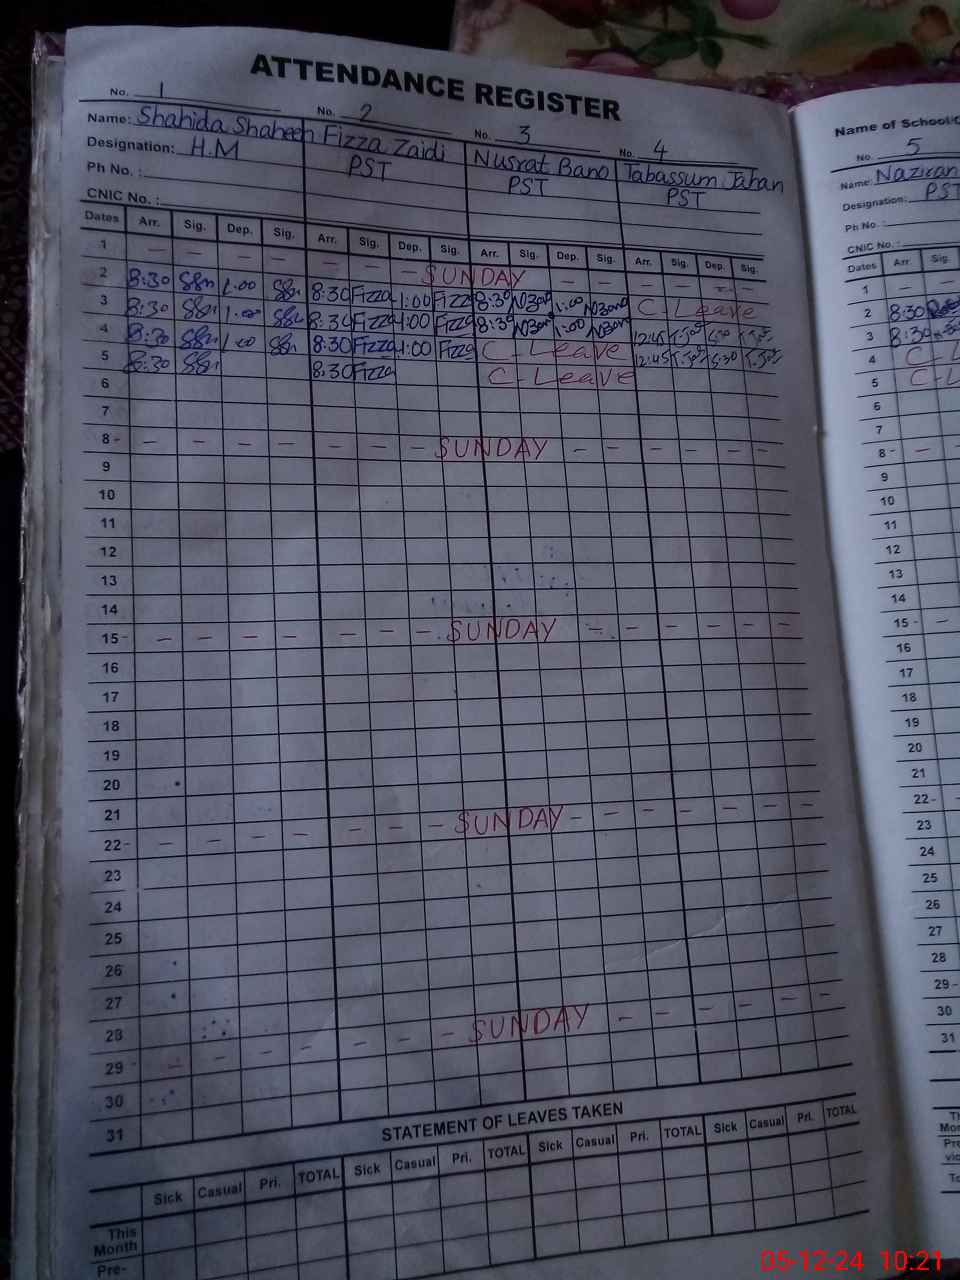 ATTENDANCE REGISTER
No. 1 No. 2 No. 3 No. 4
Name: Shahida Shaheen Fizza Zaidi Nusrat Bano Tabassum Jahan
Designation: H.M PST PST PST
Ph No. :
CNIC No. :
Dates Arr. Sig. Dep. Sig. Arr. Sig. Dep. Sig. Arr. Sig. Dep. Sig. Arr. Sig. Dep. Sig.
1 — — — — — — — SUNDAY — — — —
2 8:30 1:00 8:30 Fizza 1:00 Fizza 8:30 NBano 1:00 NBano C-Leave
3 8:30 1:00 8:30 Fizza 1:00 Fizza 8:30 NBano 1:00 NBano 12:45 5:30
4 8:30 1:00 8:30 Fizza 1:00 Fizza C-Leave 12:45 5:30
5 8:30 8:30 Fizza C-Leave
6
7
8 - — — — — — — — SUNDAY — — — — — —
9
10
11
12
13
14
15 - — — — — — — — SUNDAY — — — — — —
16
17
18
19
20
21
22 - — — — — — — — SUNDAY — — — — — —
23
24
25
26
27
28
29 - — — — — — — — SUNDAY — — — — — —
30
31
STATEMENT OF LEAVES TAKEN
Sick Casual Pri. TOTAL Sick Casual Pri. TOTAL Sick Casual Pri. TOTAL Sick Casual Pri. TOTAL
This
Month
Pre-
Name of School/
No. 5
Name: Naziran
Designation: PST
Ph No. :
CNIC No. :
Dates Arr. Sig.
1 — —
2 8:30
3 8:30
4 C-L
5 C-L
6
7
8 - —
9
10
11
12
13
14
15 - —
16
17
18
19
20
21
22 -
23
24
25
26
27
28
29 -
30
31
05-12-24 10:21